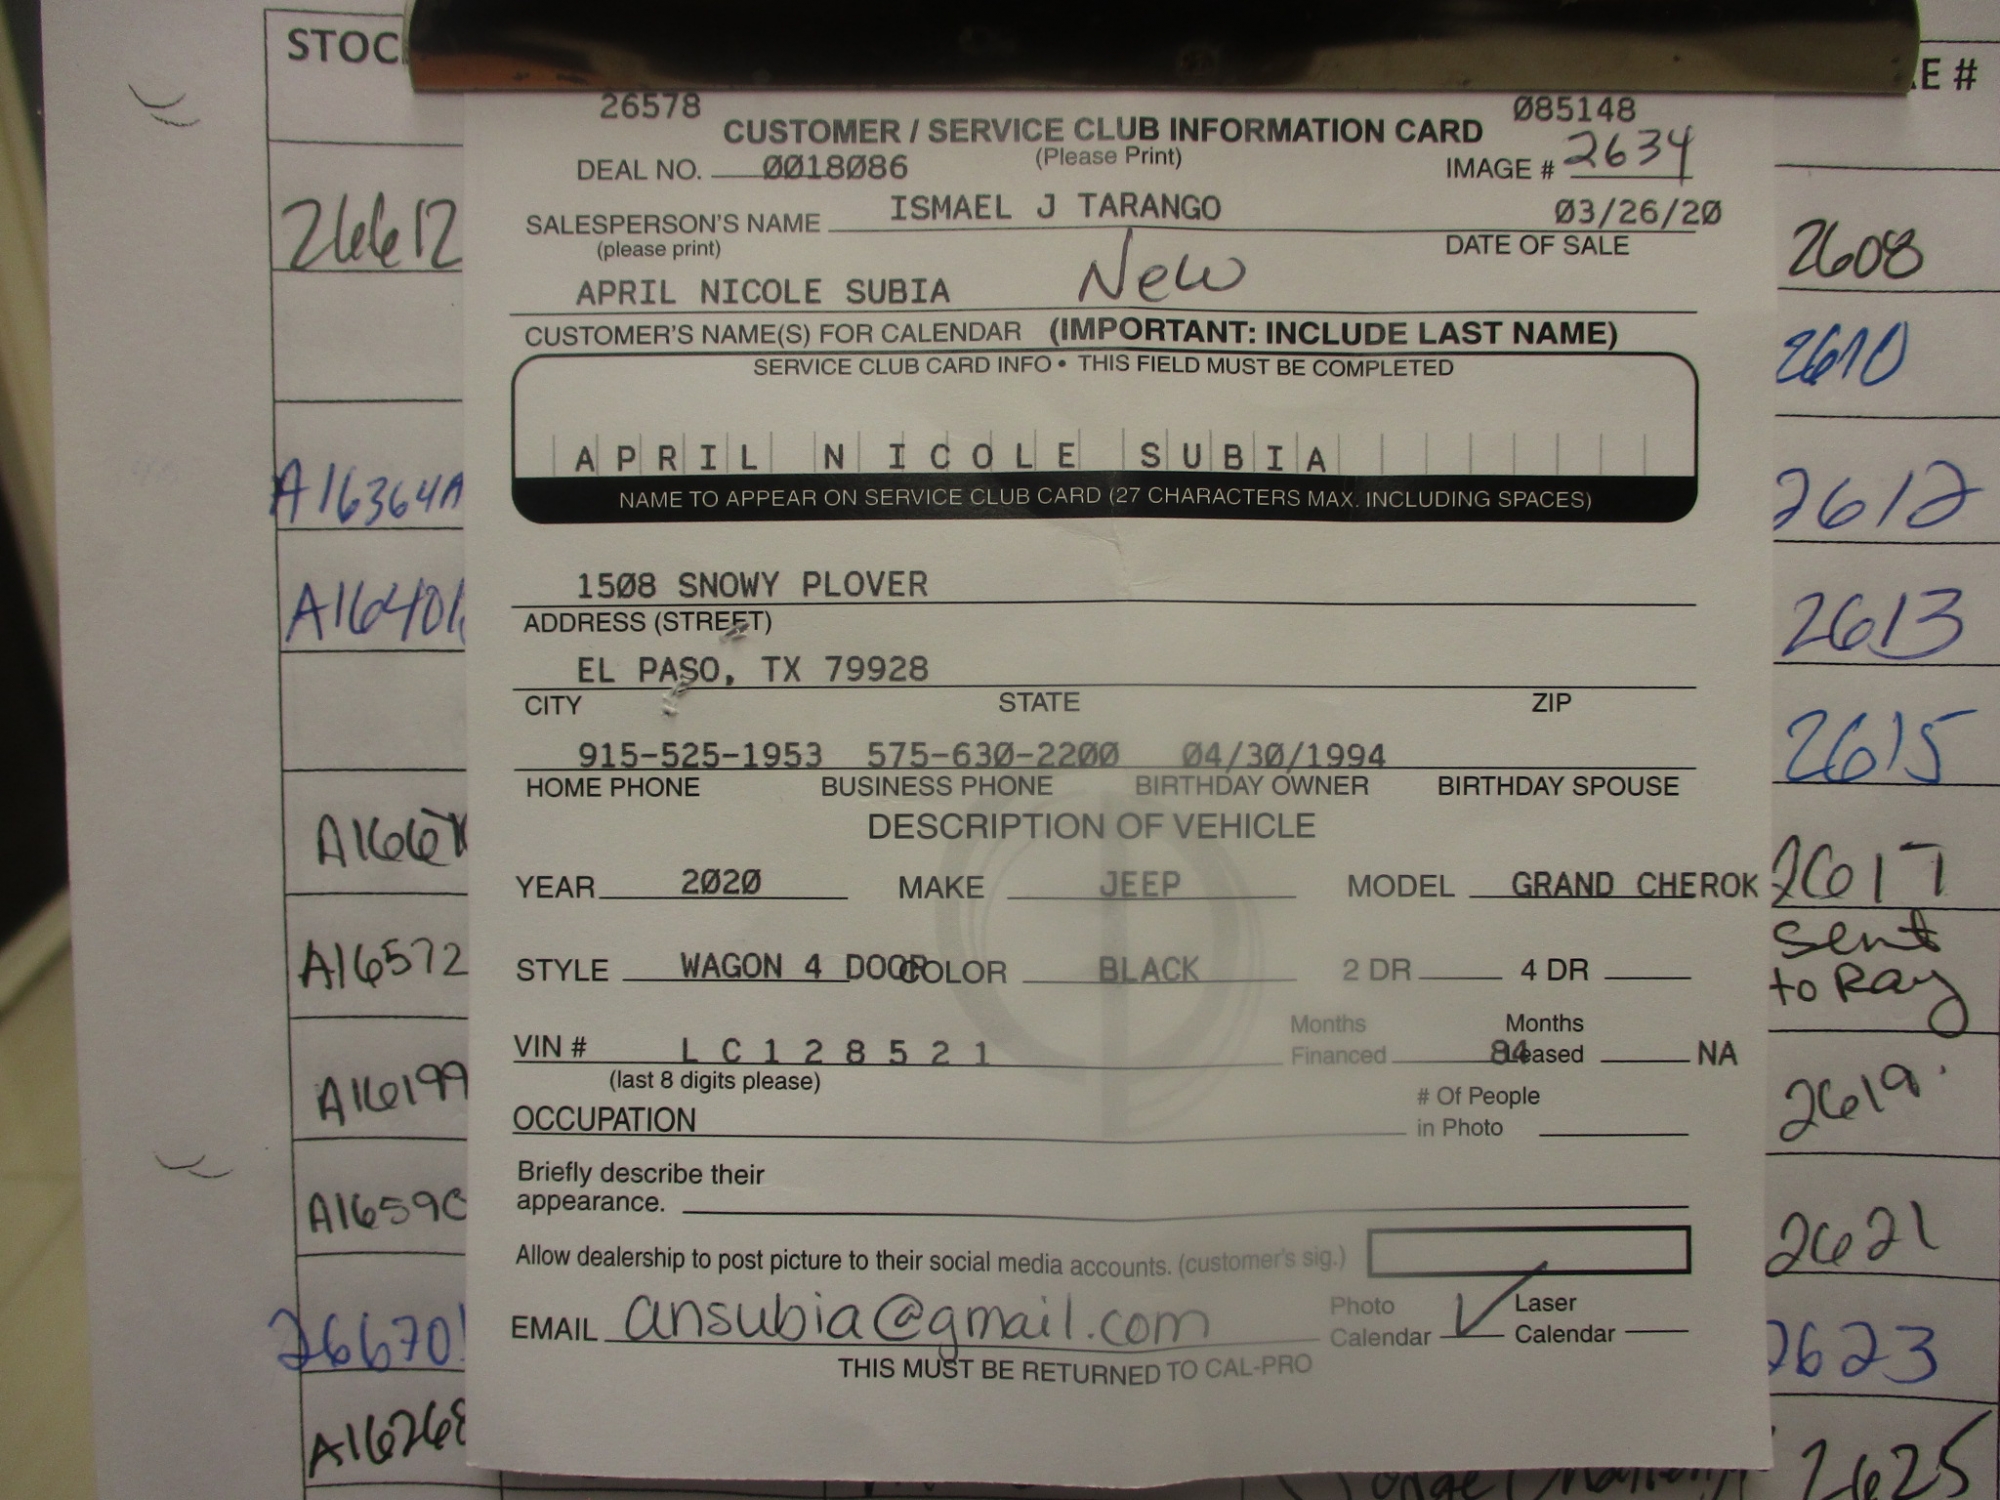 STOC
E #
26578 085148
CUSTOMER / SERVICE CLUB INFORMATION CARD
(Please Print)
DEAL NO. 0018086 IMAGE # 2634
SALESPERSON'S NAME ISMAEL J TARANGO 03/26/20
(please print) DATE OF SALE
APRIL NICOLE SUBIA New
CUSTOMER'S NAME(S) FOR CALENDAR (IMPORTANT: INCLUDE LAST NAME)
SERVICE CLUB CARD INFO • THIS FIELD MUST BE COMPLETED
APRIL NICOLE SUBIA
NAME TO APPEAR ON SERVICE CLUB CARD (27 CHARACTERS MAX. INCLUDING SPACES)
1508 SNOWY PLOVER
ADDRESS (STREET)
EL PASO, TX 79928
CITY STATE ZIP
915-525-1953 575-630-2200 04/30/1994
HOME PHONE BUSINESS PHONE BIRTHDAY OWNER BIRTHDAY SPOUSE
DESCRIPTION OF VEHICLE
YEAR 2020 MAKE JEEP MODEL GRAND CHEROK
STYLE WAGON 4 DOOR COLOR BLACK 2 DR 4 DR
VIN # LC128521 Months Financed 84 Months Leased NA
(last 8 digits please)
OCCUPATION # Of People in Photo
Briefly describe their
appearance.
Allow dealership to post picture to their social media accounts. (customer's sig.)
EMAIL ansubia@gmail.com Photo Calendar ✓ Laser Calendar
THIS MUST BE RETURNED TO CAL-PRO
26612
A16364A
A16572
A16199
2608
2610
2612
2613
2615
2617
sent
to Ray
2619
2621
2623
2625